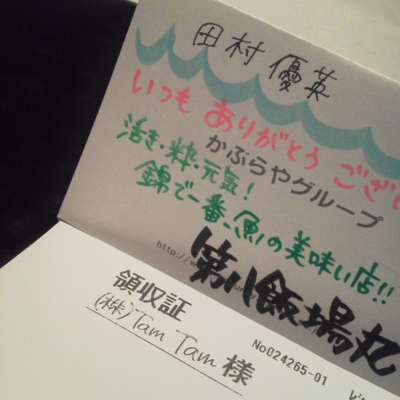 田村 優英
いつも ありがとう ござい
かぶらやグループ
活き・粋・元気!
錦で一番、魚の美味い店!!
http://w
第八飯場丸
領収証
(株)Tam Tam 様
No024265-01